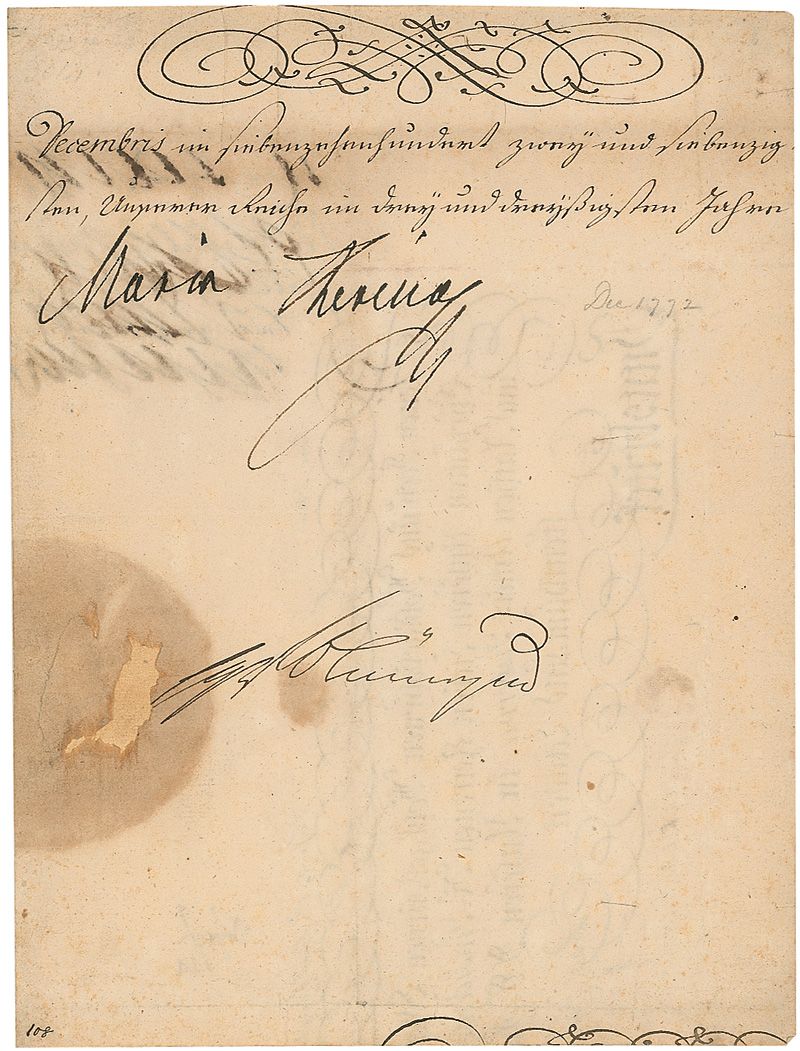 Decembris im siebenzehenhundert zwey und siebenzig-
sten, Unserer Reiche im drey und dreyßigsten Jahre
Maria Theresia
Dec 1772
108